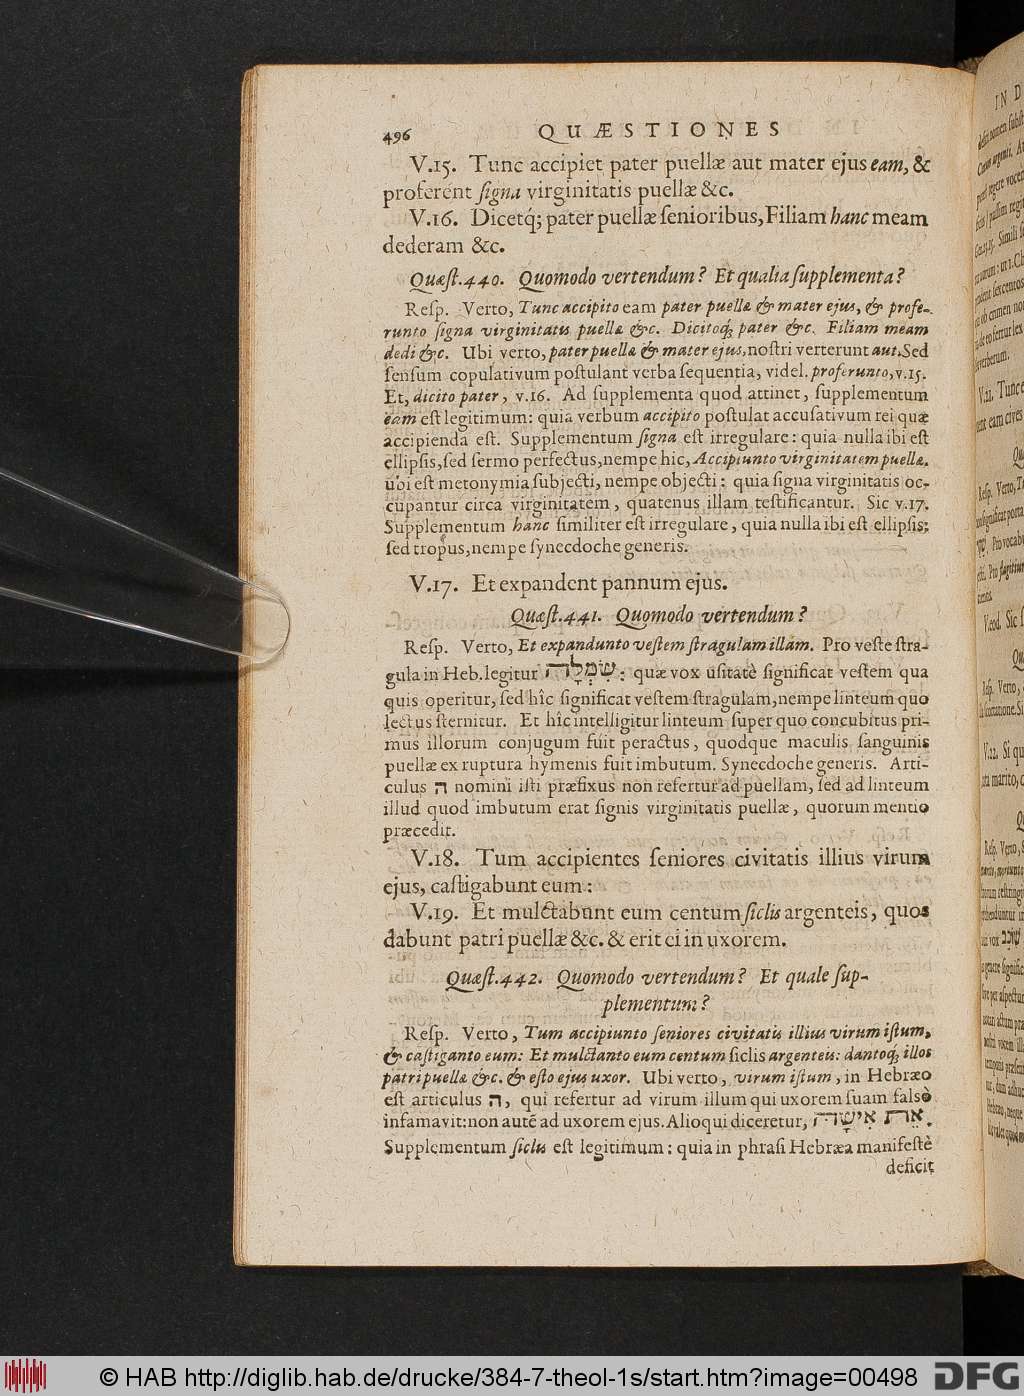 496 QUÆSTIONES
V.15. Tunc accipiet pater puellæ aut mater ejus eam, &
proferent ſigna virginitatis puellæ &c.
V.16. Dicetq́; pater puellæ ſenioribus, Filiam hanc meam
dederam &c.
Quæſt.440. Quomodo vertendum? Et qualia ſupplementa?
Reſp. Verto, Tunc accipito eam pater puellæ & mater ejus, & profe-
runto ſigna virginitatis puellæ &c. Dicitoq́; pater &c. Filiam meam
dedi &c. Ubi verto, pater puellæ & mater ejus, noſtri verterunt aut. Sed
ſenſum copulativum poſtulant verba ſequentia, videl. proferunto, v.15.
Et, dicito pater, v.16. Ad ſupplementa quod attinet, ſupplementum
eam eſt legitimum: quia verbum accipito poſtulat accuſativum rei quæ
accipienda eſt. Supplementum ſigna eſt irregulare: quia nulla ibi eſt
ellipſis, ſed ſermo perfectus, nempe hic, Accipiunto virginitatem puellæ.
ubi eſt metonymia ſubjecti, nempe objecti: quia ſigna virginitatis oc-
cupantur circa virginitatem, quatenus illam teſtificantur. Sic v.17.
Supplementum hanc ſimiliter eſt irregulare, quia nulla ibi eſt ellipſis;
ſed tropus, nempe ſynecdoche generis.
V.17. Et expandent pannum ejus.
Quæſt.441. Quomodo vertendum?
Reſp. Verto, Et expandunto veſtem ſtragulam illam. Pro veſte ſtra-
gula in Heb. legitur שִׂמְלָה: quæ vox uſitatè ſignificat veſtem qua
quis operitur, ſed hîc ſignificat veſtem ſtragulam, nempe linteum quo
lectus ſternitur. Et hîc intelligitur linteum ſuper quo concubitus pri-
mus illorum conjugum fuit peractus, quodque maculis ſanguinis
puellæ ex ruptura hymenis fuit imbutum. Synecdoche generis. Arti-
culus ה nomini iſti præfixus non refertur ad puellam, ſed ad linteum
illud quod imbutum erat ſignis virginitatis puellæ, quorum mentio
præcedit.
V.18. Tum accipientes ſeniores civitatis illius virum
ejus, caſtigabunt eum:
V.19. Et mulctabunt eum centum ſiclis argenteis, quos
dabunt patri puellæ &c. & erit ei in uxorem.
Quæſt.442. Quomodo vertendum? Et quale ſup-
plementum?
Reſp. Verto, Tum accipiunto ſeniores civitatis illius virum iſtum,
& caſtiganto eum: Et mulctanto eum centum ſiclis argenteis: dantoq́; illos
patri puellæ &c. & eſto ejus uxor. Ubi verto, virum iſtum, in Hebræo
eſt articulus ה, qui refertur ad virum illum qui uxorem ſuam falsò
infamavit: non autẽ ad uxorem ejus. Alioqui diceretur, אֵת אִישָׁהּ.
Supplementum ſiclis eſt legitimum: quia in phraſi Hebræa manifeſtè
deficit
© HAB http://diglib.hab.de/drucke/384-7-theol-1s/start.htm?image=00498
DFG